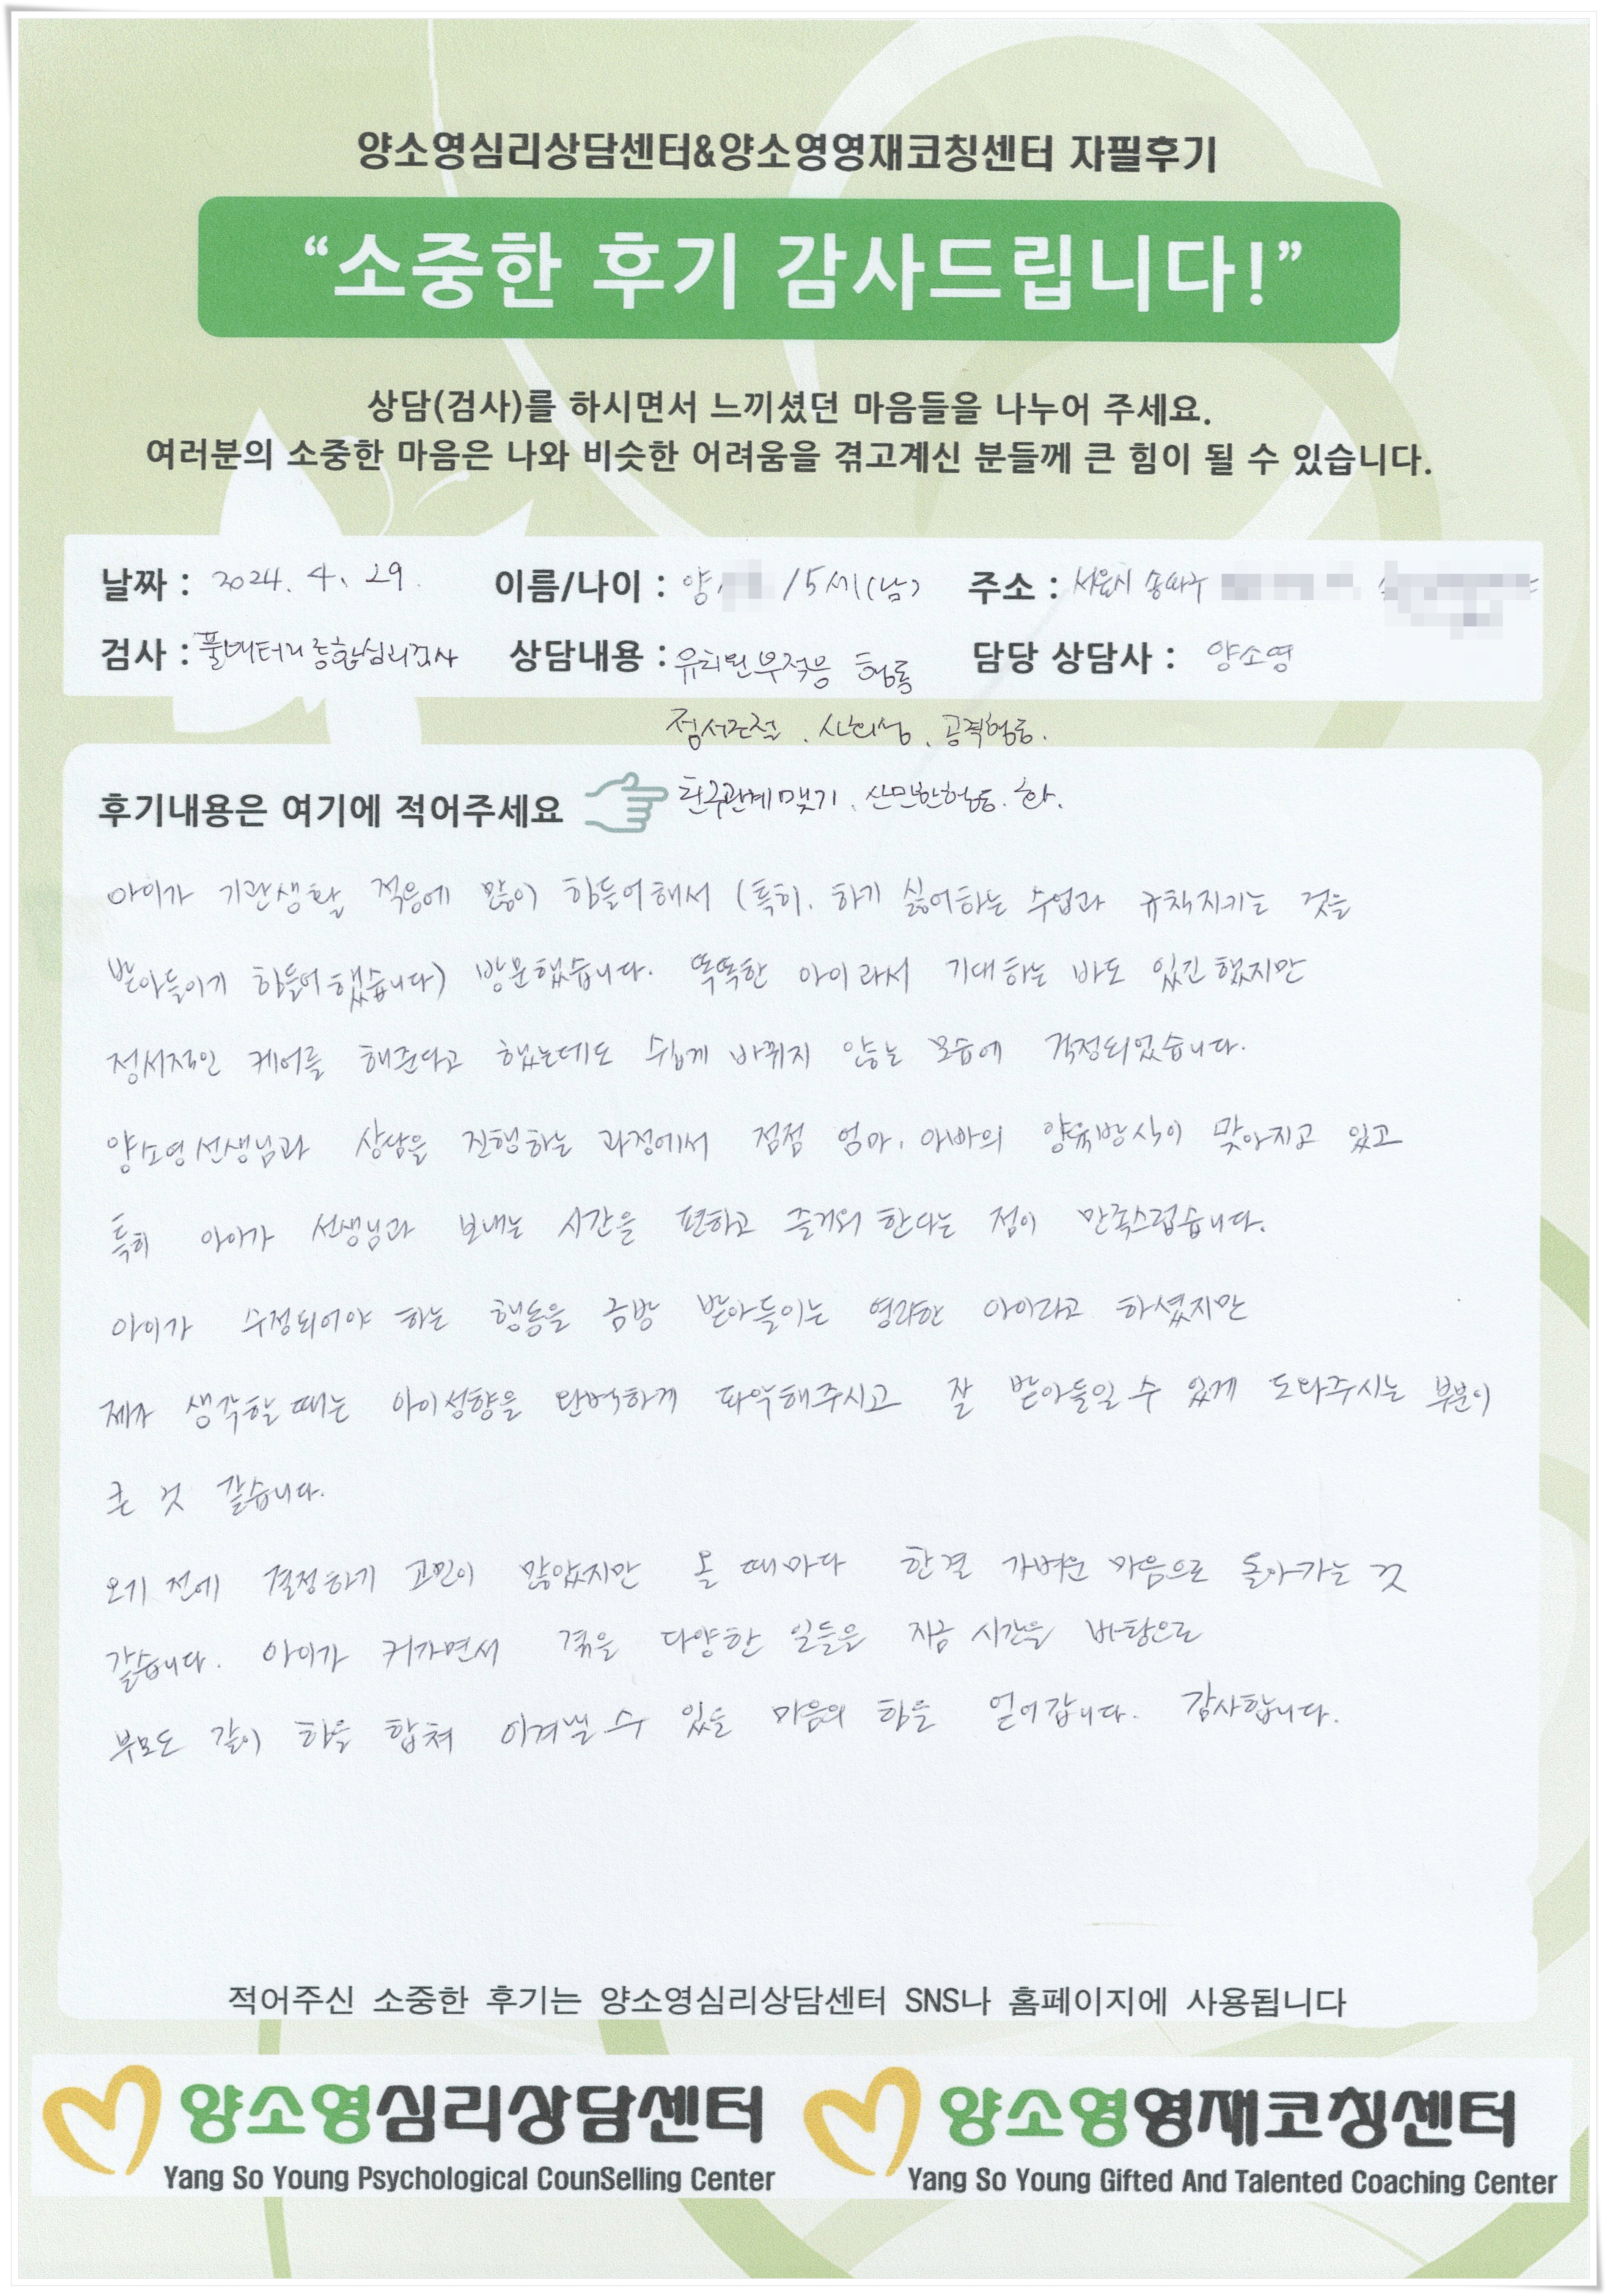 양소영심리상담센터&양소영영재코칭센터 자필후기
“소중한 후기 감사드립니다!”
상담(검사)를 하시면서 느끼셨던 마음들을 나누어 주세요.
여러분의 소중한 마음은 나와 비슷한 어려움을 겪고계신 분들께 큰 힘이 될 수 있습니다.
날짜 : 2024. 4. 29. 이름/나이 : 양 /5세(남) 주소 : 서울시 송파구
검사 : 풀배터리종합심리검사 상담내용 : 유치원부적응 행동 담당 상담사 : 양소영
정서조절, 사회성, 공격행동.
후기내용은 여기에 적어주세요 친구관계맺기, 산만한행동. 화.
아이가 기관생활 적응에 많이 힘들어해서 (특히, 하기 싫어하는 수업과 규칙지키는 것을
받아들이기 힘들어했습니다) 방문했습니다. 똑똑한 아이라서 기대하는 바도 있긴했지만
정서적인 케어를 해준다고 했는데도 쉽게 바뀌지 않는 모습에 걱정되었습니다.
양소영선생님과 상담을 진행하는 과정에서 점점 엄마, 아빠의 양육방식이 맞아지고 있고
특히 아이가 선생님과 보내는 시간을 편하고 즐거워 한다는 점이 만족스럽습니다.
아이가 수정되어야 하는 행동을 금방 받아들이는 영리한 아이라고 하셨지만
제가 생각할 때는 아이성향을 완벽하게 파악해주시고 잘 받아들일 수 있게 도와주시는 부분이
큰 것 같습니다.
오기 전에 결정하기 고민이 많았지만 올 때마다 한결 가벼운 마음으로 돌아가는 것
같습니다. 아이가 커가면서 겪을 다양한 일들을 지금 시간을 바탕으로
부모도 같이 힘을 합쳐 이겨낼 수 있을 마음의 힘을 얻어갑니다. 감사합니다.
적어주신 소중한 후기는 양소영심리상담센터 SNS나 홈페이지에 사용됩니다
양소영심리상담센터 양소영영재코칭센터
Yang So Young Psychological CounSelling Center Yang So Young Gifted And Talented Coaching Center